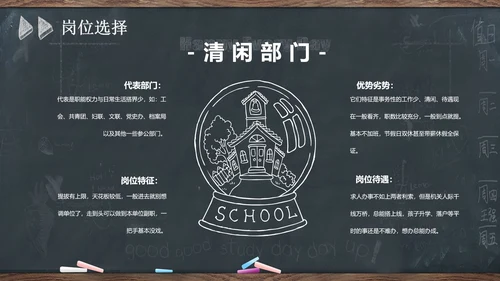 岗位选择
- 清 闲 部 门 -
代表部门:
代表是职能权力与日常生活搭界少,如:工
会、共青团、妇联、文联、党史办、档案局
以及其他一些参公部门。
优势劣势:
它们特征是事务性的工作少、清闲、待遇现
在一般看齐、职数比较充分,一般到点就握。
基本不加班,节假日双休甚至带薪休假全保
证。
岗位特征:
提拔有上限,天花板较低,一般进去就别想
调单位了,走到头可以做到本单位副职,一
把手基本没戏。
岗位待遇:
求人办事不如上两者利索,但是机关人际千
线万桥,总能搭上线,孩子升学、落户等平
时的事还是不难办,想办总能办成。
SCHOOL
good good study day day up
值日
周一
周三
周四
周五